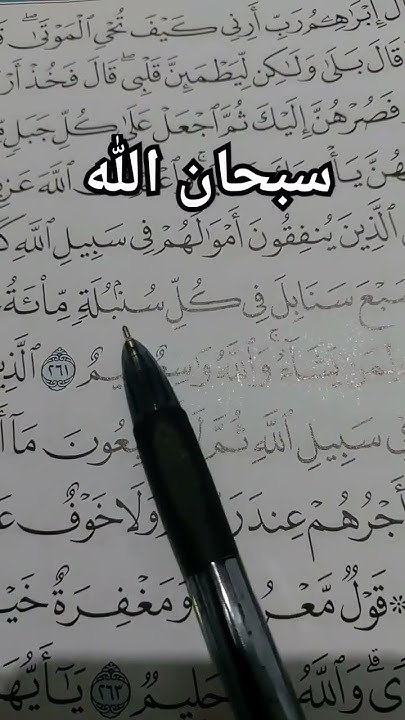 إِبْرَٰهِـۧمُ رَبِّ أَرِنِي كَيْفَ تُحْيِ ٱلْمَوْتَىٰۖ
قَالَ بَلَىٰ وَلَـٰكِن لِّيَطْمَئِنَّ قَلْبِيۖ قَالَ فَخُذْ
فَصُرْهُنَّ إِلَيْكَ ثُمَّ ٱجْعَلْ عَلَىٰ كُلِّ جَبَلٍ
سبحان الله
ٱللَّهَ
ٱلَّذِينَ يُنفِقُونَ أَمْوَٰلَهُمْ فِي سَبِيلِ ٱللَّهِ
سَبْعَ سَنَابِلَ فِي كُلِّ سُنۢبُلَةٍ مِّاْئَةُ
يَشَآءُۚ وَٱللَّهُ ٢٦١
سَبِيلِ ٱللَّهِ ثُمَّ مَآ
أَجْرُهُمْ عِندَ وَلَا خَوْفٌ
۞ قَوْلٌ وَمَغْفِرَةٌ
وَٱللَّهُ حَلِيمٌ ٢٦٣